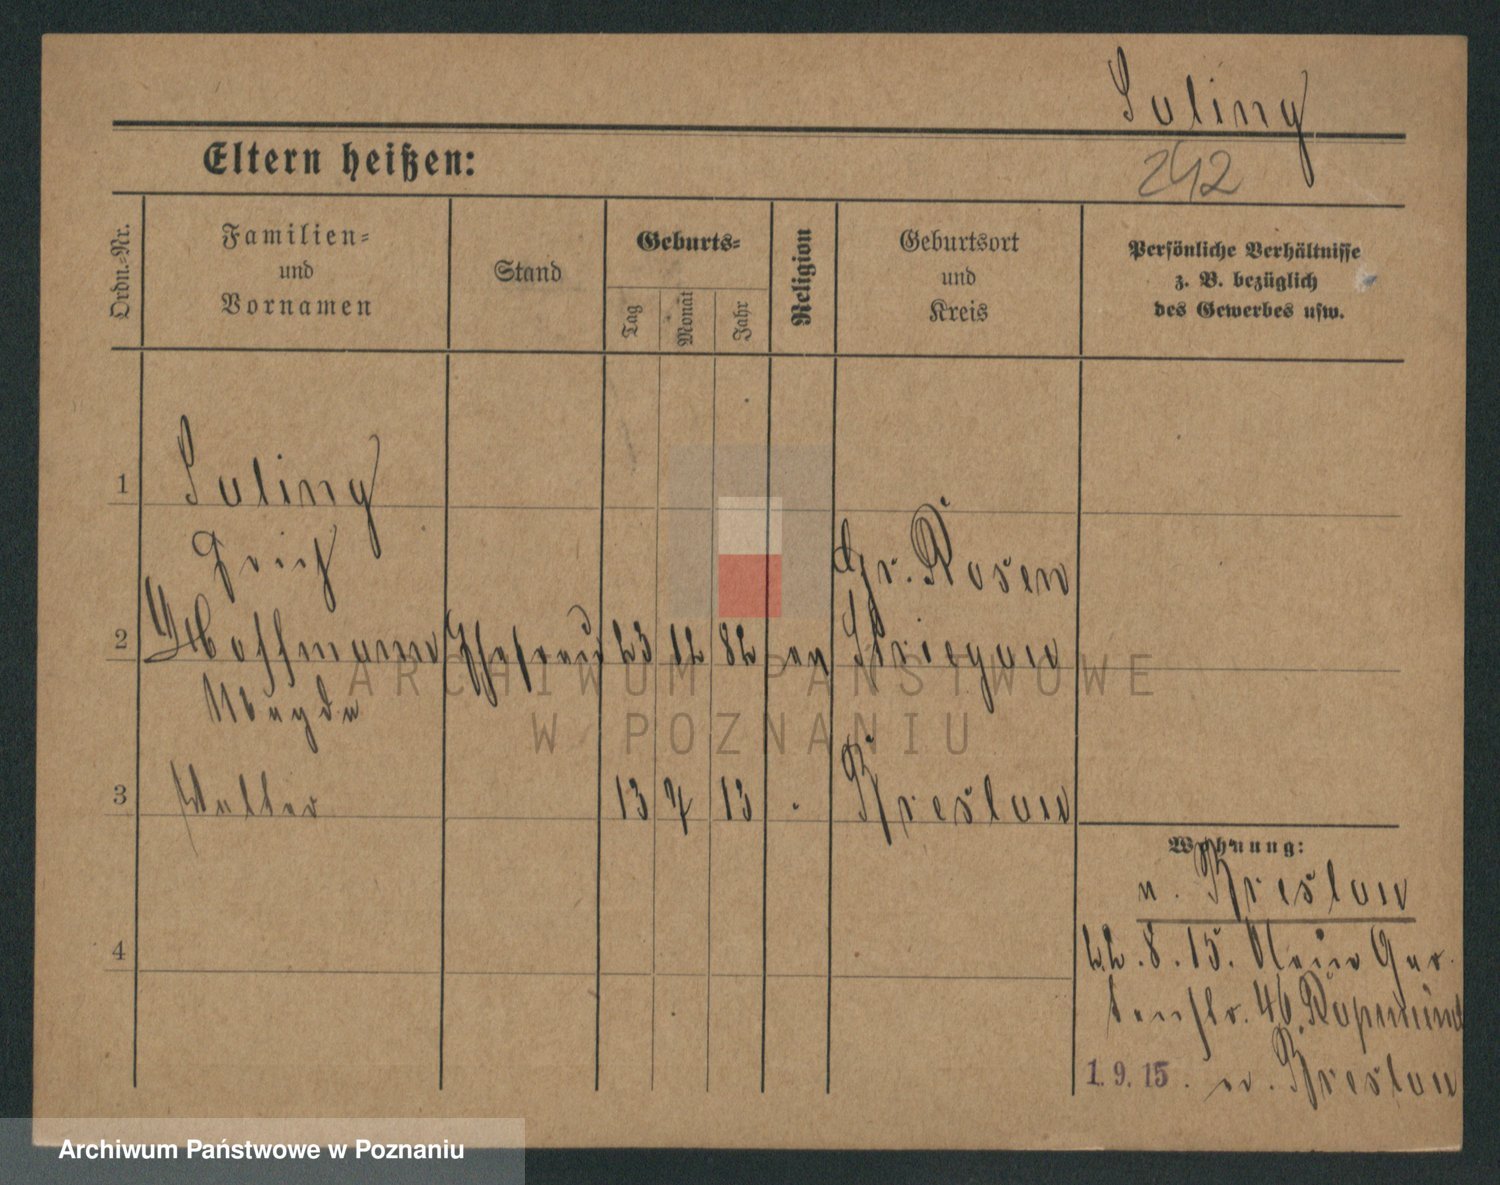 Suling
242
Eltern heißen:
Ordn.-Nr.
Familien-
und
Vornamen
Stand
Geburts-
Tag
Monat
Jahr
Religion
Geburtsort
und
Kreis
Persönliche Verhältnisse
z. B. bezüglich
des Gewerbes usw.
1
Suling
Erich
Gr. Rosen
2
Hoffmann Ehefrau 23 12 82 ev Striegau
Magda
3 Walter 13 4 13 . Breslau
Wohnung:
n. Breslau
22. 8. 15. Gar-
tenstr. 46.
1. 9. 15. Breslau
4
ARCHIWUM PAŃSTWOWE
W POZNANIU
Archiwum Państwowe w Poznaniu